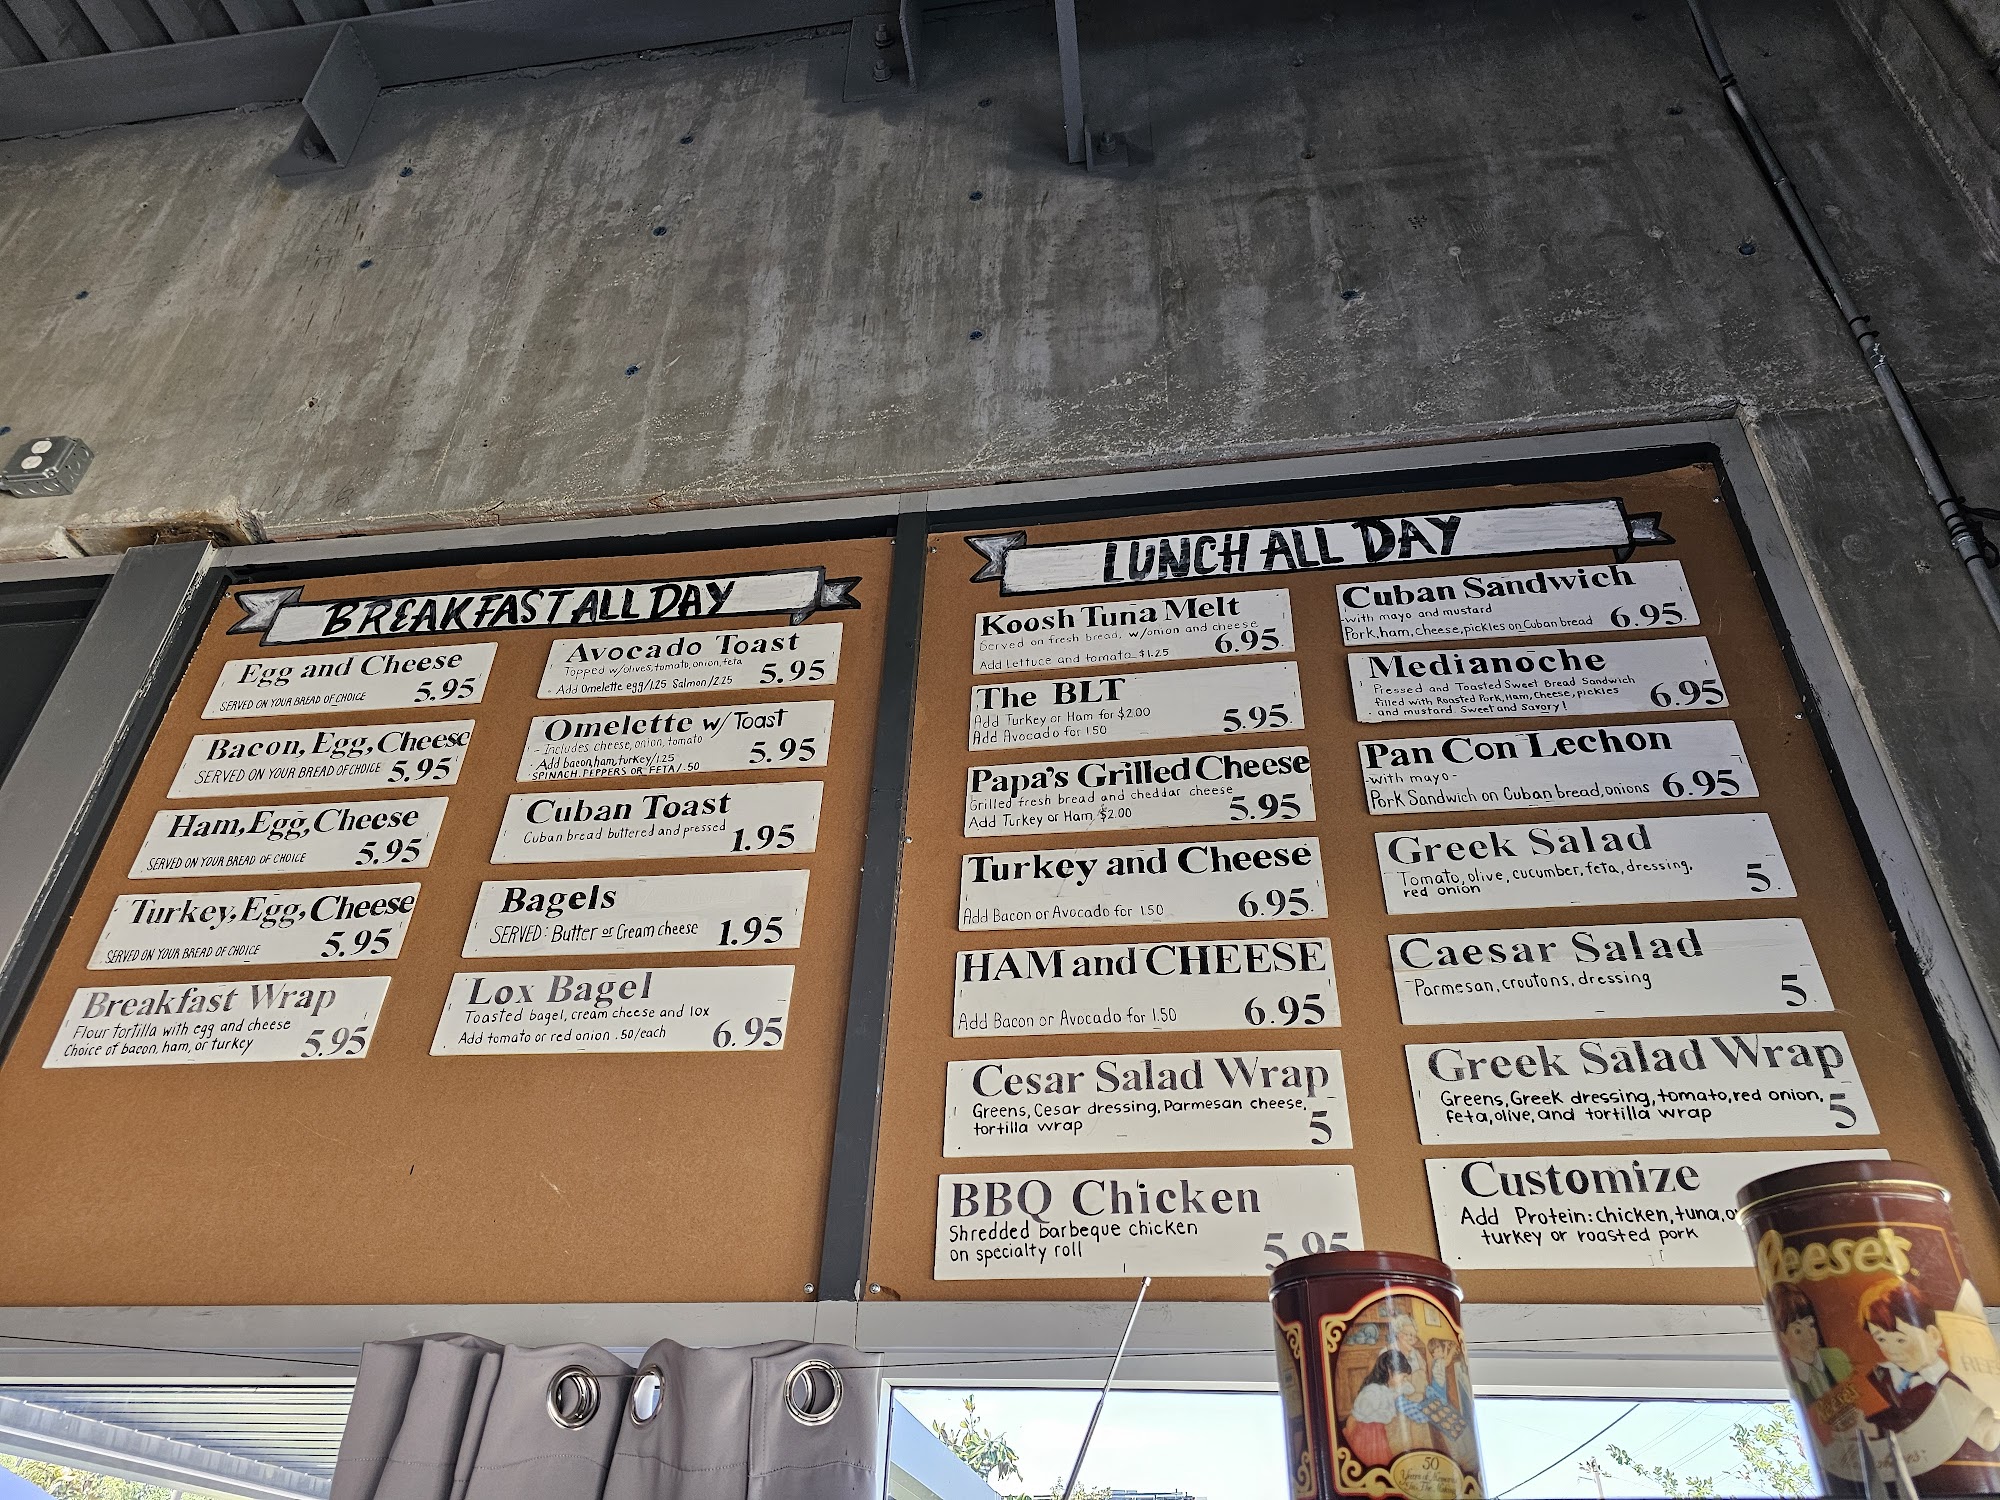 BREAKFAST ALL DAY
Egg and Cheese
SERVED ON YOUR BREAD OF CHOICE 5.95
Bacon, Egg, Cheese
SERVED ON YOUR BREAD OF CHOICE 5.95
Ham, Egg, Cheese
SERVED ON YOUR BREAD OF CHOICE 5.95
Turkey, Egg, Cheese
SERVED ON YOUR BREAD OF CHOICE 5.95
Breakfast Wrap
Flour tortilla with egg and cheese
Choice of bacon, ham, or turkey 5.95
Avocado Toast
Topped w/olives, tomato, onion, feta
- Add Omelette egg/1.25 Salmon/2.25 5.95
Omelette w/ Toast
- Includes cheese, onion, tomato
- Add bacon, ham, turkey/1.25
- SPINACH, PEPPERS OR FETA/.50 5.95
Cuban Toast
Cuban bread buttered and pressed 1.95
Bagels
SERVED: Butter or Cream cheese 1.95
Lox Bagel
Toasted bagel, cream cheese and lox
Add tomato or red onion .50/each 6.95
LUNCH ALL DAY
Koosh Tuna Melt
Served on fresh bread, w/onion and cheese
Add Lettuce and tomato $1.25 6.95
The BLT
Add Turkey or Ham for $2.00
Add Avocado for 1.50 5.95
Papa's Grilled Cheese
Grilled fresh bread and cheddar cheese
Add Turkey or Ham $2.00 5.95
Turkey and Cheese
Add Bacon or Avocado for 1.50 6.95
HAM and CHEESE
Add Bacon or Avocado for 1.50 6.95
Cesar Salad Wrap
Greens, Cesar dressing, Parmesan cheese,
tortilla wrap 5
BBQ Chicken
Shredded barbeque chicken
on specialty roll 5.95
Cuban Sandwich
-with mayo and mustard
Pork, ham, cheese, pickles on Cuban bread 6.95
Medianoche
Pressed and Toasted Sweet Bread Sandwich
filled with Roasted Pork, Ham, Cheese, pickles
- and mustard. Sweet and Savory! 6.95
Pan Con Lechon
-with mayo-
Pork Sandwich on Cuban bread, onions 6.95
Greek Salad
Tomato, olive, cucumber, feta, dressing,
red onion 5.
Caesar Salad
Parmesan, croutons, dressing 5.
Greek Salad Wrap
Greens, Greek dressing, tomato, red onion,
feta, olive, and tortilla wrap 5
Customize
Add Protein: chicken, tuna,
turkey or roasted pork
Reese's
50